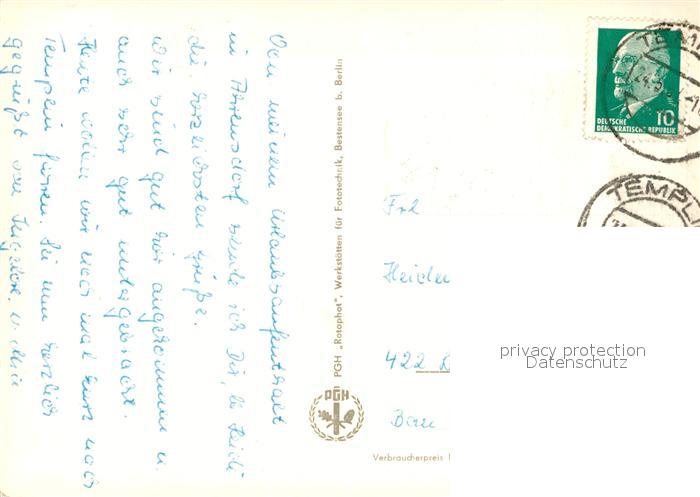 Von meinem Urlaubsaufenthalt
in Ahrensdorf sende ich Dir, lb Heidi
die herzlichsten Grüße.
Wir sind gut hier angekommen u.
auch sehr gut untergebracht.
Heute wollen wir noch mal kurz nach
Templin fahren. Sei nun herzlich
gegrüßt von
PGH „Rotophot“, Werkstätten für Fototechnik, Bestensee b. Berlin
PGH
Verbraucherpreis
TEMPL
10
DEUTSCHE
DEMOKRATISCHE REPUBLIK
TEMPLI
Frl
422
privacy protection
Datenschutz